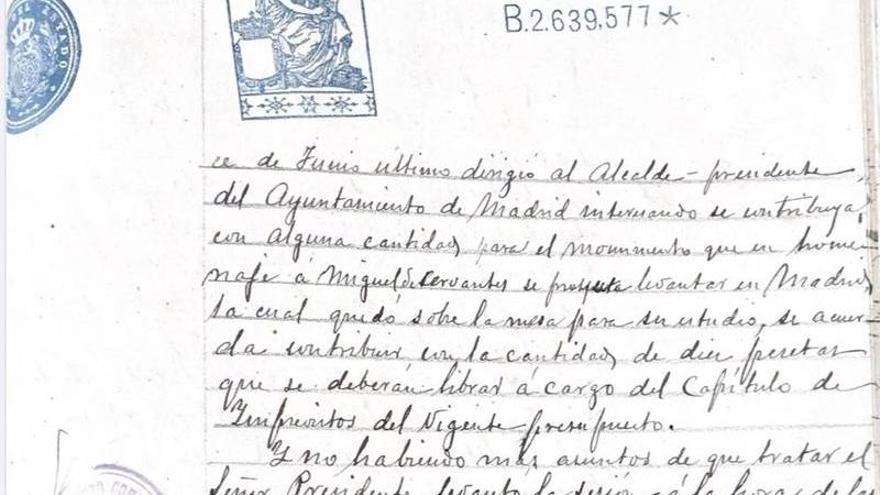 B.2.639,577*
ce de Junio último dirigió al Alcalde-presidente,
del Ayuntamiento de Madrid interesando se contribuya,
con alguna cantidad, para el monumento que en home-
naje á Miguel de Cervantes se proyecta levantar en Madrid,
la cual quedó sobre la mesa para su estudio, se acuer-
da contribuir con la cantidad de diez pesetas
que se deberán librar á cargo del Capítulo de
Imprevistos del Vigente presupuesto.
Y no habiendo más asuntos de que tratar el
Señor Presidente levantó la sesión á la hora de las